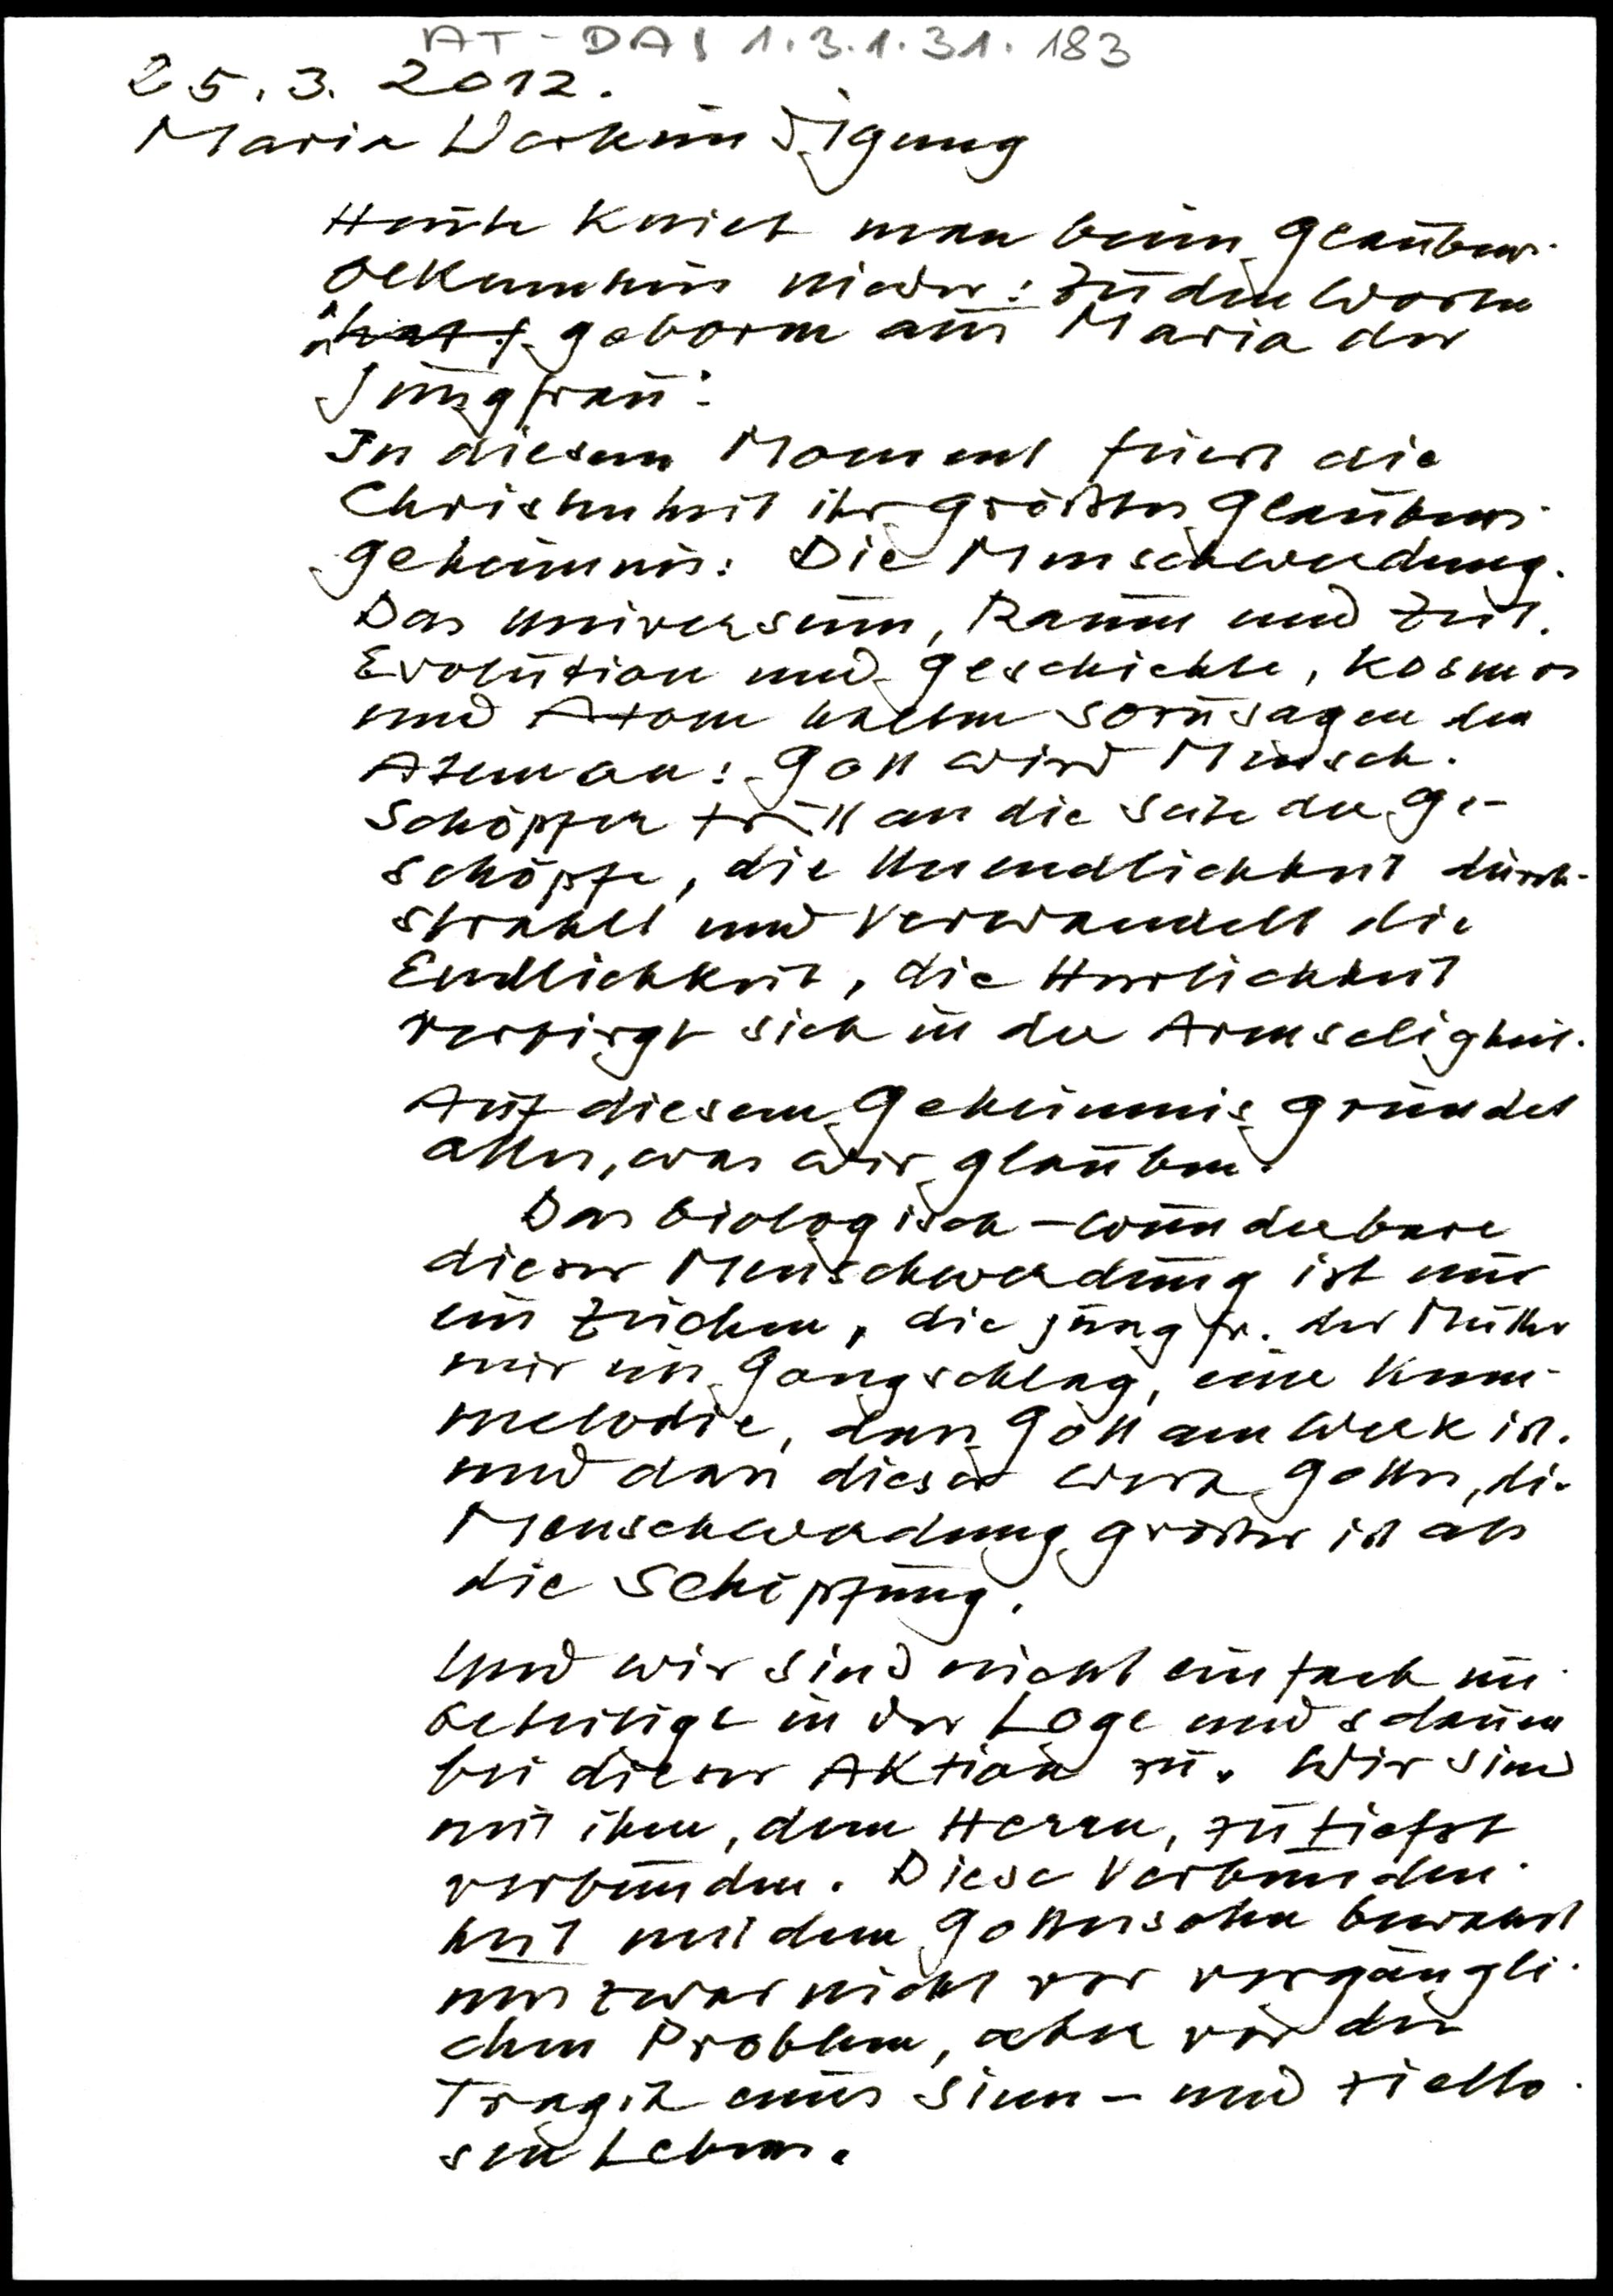 AT-DAI 1.3.1.31.183
25.3.2012.
Maria Verkündigung
Heute kniet man beim Glaubens-
bekenntnis nieder: zu den Worten
" geboren aus Maria der
Jungfrau".
In diesem Moment feiert die
Christenheit ihr größtes Glaubens-
geheimnis: Die Menschwerdung.
Das Universum, Raum und Zeit.
Evolution und Geschichte, Kosmos
und Atom halten sozusagen den
Atem an: Gott wird Mensch.
Schöpfer tritt an die Seite der Ge-
schöpfe, die Unendlichkeit durch-
strahlt und verwandelt die
Endlichkeit, die Herrlichkeit
verbirgt sich in der Armseligkeit.
Auf diesem Geheimnis gründet
alles, was wir glauben.
Das biologisch-wunderbare
dieser Menschwerdung ist nur
ein Zeichen, die jungfr. der Mutter
nur ein Gongschlag, eine Kenn-
melodie, dass Gott am Werk ist.
und dass dieses Werk Gottes, die
Menschwerdung größer ist als
die Schöpfung.
Und wir sind nicht einfach un-
beteiligt in der Loge und schauen
bei dieser Aktion zu. Wir sind
mit ihm, dem Herrn, zutiefst
verbunden. Diese Verbunden-
heit mit dem Gottessohn bewahrt
uns zwar nicht vor vergängli-
chen Problemen, aber vor der
Tragik eines Sinn- und ziello-
sen Lebens.